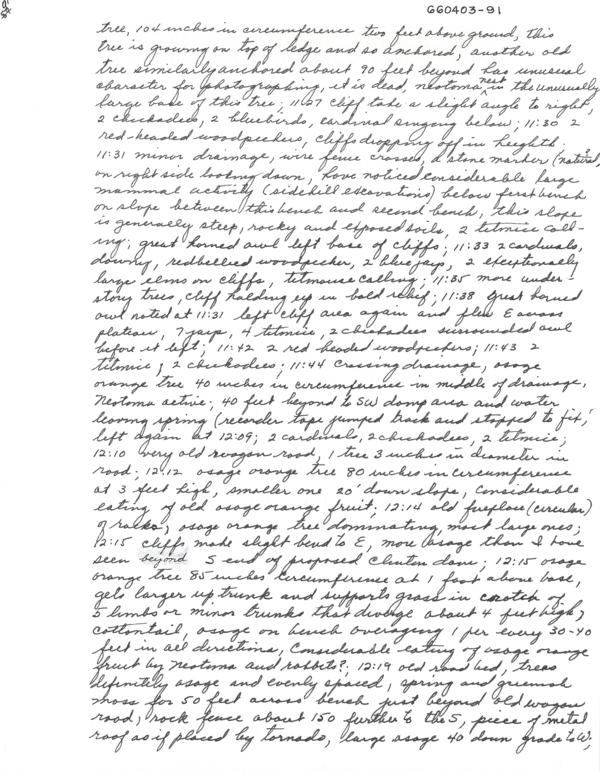 GG0403-91
tree, 104 inches in circumference two feet above ground, this
tree is growing on top of ledge and so anchored, another old
tree similarly anchored about 90 feet beyond has unusual
character for photographing, it is dead, neotoma nest in the unusually
large base of this tree; 11:27 cliff take a slight angle to right,
2 chickadees, 2 bluebirds, cardinal singing below; 11:30 2
red-headed woodpeckers, cliffs dropping off in heighth;
11:31 minor drainage, wire fence crossed, a stone marker (natural?)
on right side looking down, have noticed considerable large
mammal activity (sidehill excavations) below first bench
on slope between this bench and second bench, this slope
is generally steep, rocky and exposed soils, 2 titmice call-
ing; great horned owl left base of cliffs; 11:33 2 cardinals,
downy, redbellied woodpecker, 2 bluejays, 2 exceptionally
large elms on cliffs, titmouse calling; 11:35 more under-
story trees, cliff holding up in bold relief; 11:38 great horned
owl noted at 11:31 left cliff area again and flew E across
plateau, 7 jays, 4 titmice, 2 chickadees surrounded owl
before it left; 11:42 2 red headed woodpeckers; 11:43 2
titmice; 2 chickadees; 11:44 crossing drainage, osage
orange tree 40 inches in circumference in middle of drainage,
Neotoma active; 40 feet beyond to SW damp area and water
leaving spring (recorder tape jumped track and stopped to fix,
left again at 12:09; 2 cardinals, 2 chickadees, 2 titmice;
12:10 very old wagon road, 1 tree 3 inches in diameter in
road; 12:12 osage orange tree 80 inches in circumference
at 3 feet high, smaller one 20' down slope, considerable
eating of old osage orange fruit; 12:14 old fireplace (circular)
of rocks; osage orange tree dominating, most large ones;
12:15 cliffs make slight bend to E, more osage than I have
seen beyond S end of proposed Clinton dam; 12:15 osage
orange tree 85 inches circumference at 1 foot above base,
gets larger up trunk and supports grass in crotch of
5 limbs or minor trunks that diverge about 4 feet high;
cottontail, osage on bench averaging 1 per every 30-40
feet in all directions, considerable eating of osage orange
fruit by Neotoma and rabbits?; 12:19 old road bed, trees
definitely osage and evenly spaced, spring and greenish
moss for 50 feet across bench just beyond old wagon
road; rock fence about 150 further to the S, piece of metal
roof as if placed by tornado, large osage 40 down grade to W,